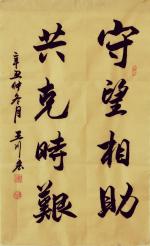 守望相助
共克時艱
辛丑仲冬月 王川泉